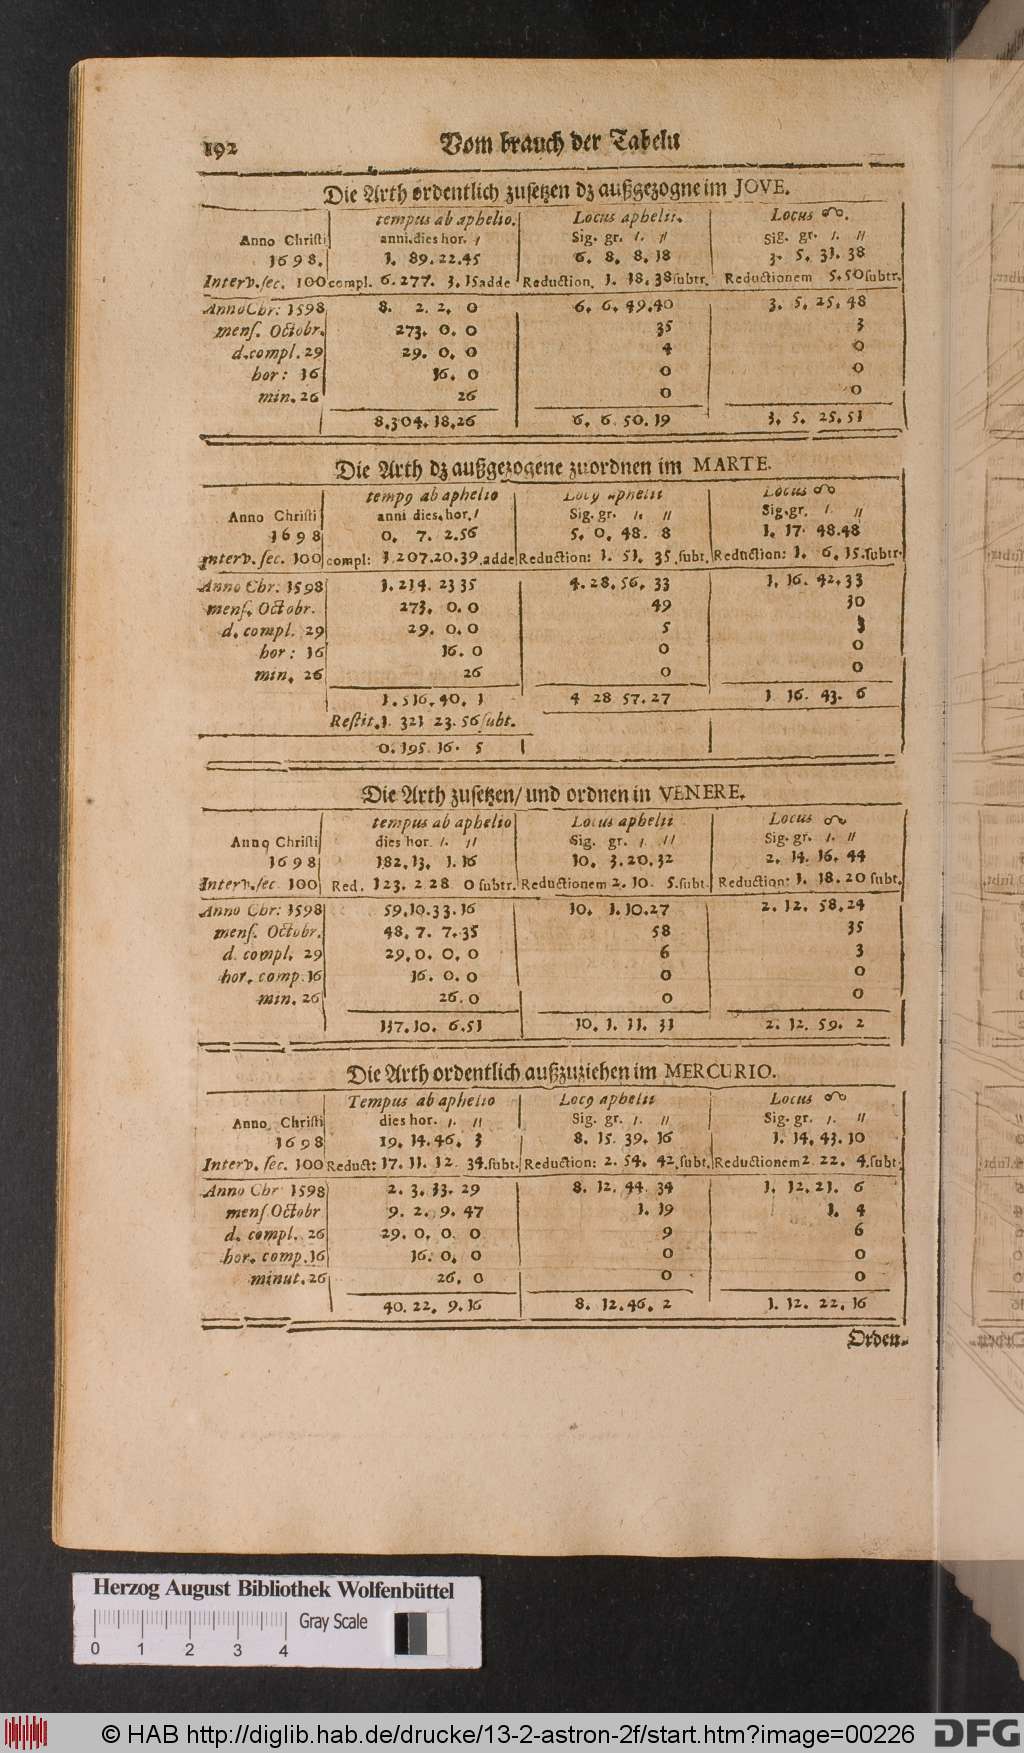 192 Vom brauch der Tabeln
Die Arth ordentlich zusetzen dz außgezogne im JOVE.
tempus ab aphelio. Locus aphelii. Locus ☊.
Anno Christi anni. dies hor. ׀ Sig. gr. ׀. ׀׀ Sig. gr. ׀. ׀׀
1698. 1. 89. 22. 45 6. 8. 8. 18 3. 5. 31. 38
Interv. sec. 100 compl. 6. 277. 3. 15 adde Reduction. 1. 18. 38 subtr. Reductionem 5. 50 subtr.
Anno Chr: 1598 8. 2. 2. 0 6. 6. 49. 40 3. 5. 25. 48
mens. Octobr. 273. 0. 0 35 3
d. compl. 29 29. 0. 0 4 0
hor: 16 16. 0 0 0
min. 26 26 0 0
8. 304. 18. 26 6. 6 50. 19 3. 5. 25. 51
Die Arth dz außgezogene zuordnen im MARTE.
temp9 ab aphelio Loc9 aphelii Locus ☊
Anno Christi anni dies. hor. ׀ Sig. gr. ׀. ׀׀ Sig. gr. ׀. ׀׀
1698 0. 7. 2. 56 5. 0. 48. 8 1. 17. 48. 48
Interv. sec. 100 compl: 1. 207. 20. 39. adde Reduction: 1. 51. 35. subt. Reduction: 1. 6. 15. subtr.
Anno Chr: 1598 1. 214. 23 35 4. 28. 56. 33 1. 16. 42. 33
mens. Octobr. 273. 0. 0 49 30
d. compl. 29 29. 0. 0 5 3
hor: 16 16. 0 0 0
min. 26 26 0 0
1. 516. 40. 1 4 28 57. 27 1 16. 43. 6
Restit. 1. 321 23. 56 subt.
0. 195. 16. 5
Die Arth zusetzen/ und ordnen in VENERE.
tempus ab aphelio Locus aphelii Locus ☊
Anno Christi dies hor. ׀. ׀׀ Sig. gr. ׀. ׀׀ Sig. gr. ׀. ׀׀
1698 182. 13. 1. 16 10. 3. 20. 32 2. 14. 16. 44
Interv. sec. 100 Red. 123. 2 28. 0 subtr. Reductionem 2. 10. 5. subt. Reduction: 1. 18. 20 subt.
Anno Chr: 1598 59. 10. 33. 16 10. 1. 10. 27 2. 12. 58. 24
mens. Octobr. 48. 7. 7. 35 58 35
d. compl. 29 29. 0. 0. 0 6 3
hor. comp. 16 16. 0. 0 0 0
min. 26 26. 0 0 0
137. 10. 6. 51 10. 1. 11. 31 2. 12. 59. 2
Die Arth ordentlich außzuziehen im MERCURIO.
Tempus ab aphelio Loc9 aphelii Locus ☊
Anno Christi dies hor. ׀. ׀׀ Sig. gr. ׀. ׀׀ Sig. gr. ׀. ׀׀
1698 19. 14. 46. 3 8. 15. 39. 16 1. 14. 43. 10
Interv. sec. 100 Reduct: 17. 11. 12. 34. subt. Reduction: 2. 54. 42. subt. Reductionem 2. 22. 4. subt.
Anno Chr 1598 2. 3. 33. 29 8. 12. 44. 34 1. 12. 21. 6
mens Octobr 9. 2. 9. 47 1. 19 1. 4
d. compl. 26 29. 0. 0. 0 9 6
hor. comp. 16 16. 0. 0 0 0
minut. 26 26. 0 0 0
40. 22. 9. 16 8. 12. 46. 2 1. 12. 22. 16
Orden-
Herzog August Bibliothek Wolfenbüttel
Gray Scale
0 1 2 3 4
© HAB http://diglib.hab.de/drucke/13-2-astron-2f/start.htm?image=00226 DFG